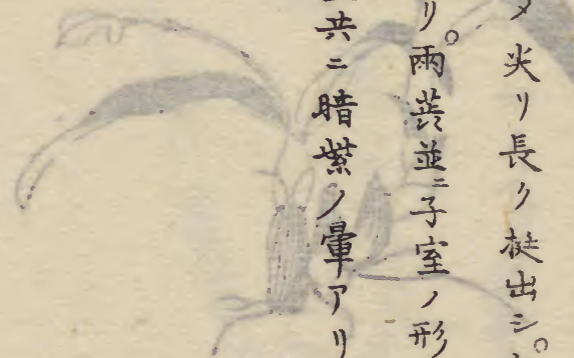 メ尖リ長ク挺出シ。
リ。雨蕊並ニ子室ノ形
共ニ暗紫ノ暈アリ